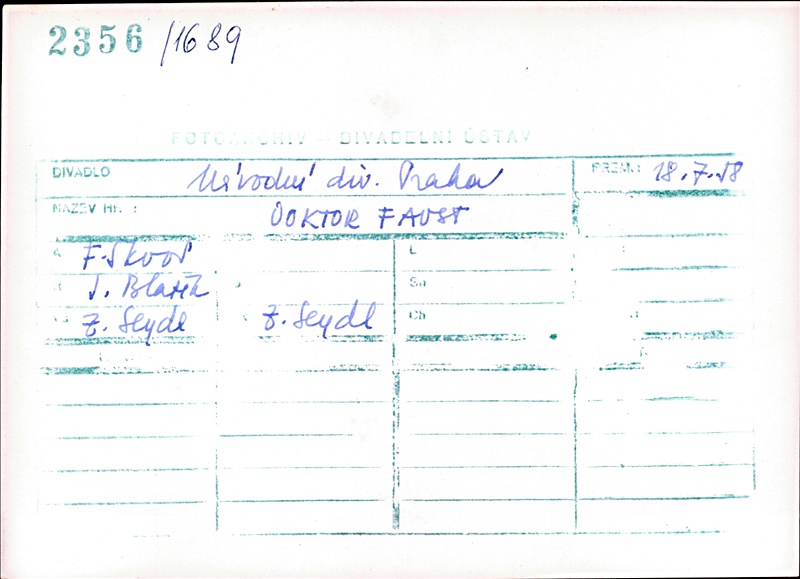 2356 /1689
FOTOARCHIV – DIVADELNÍ ÚSTAV
DIVADLO Národní div. Praha PREM.: 18.7.58
NÁZEV HRY : DOKTOR FAUST
A F. Škvor L
J. Blažek Sn
Z. Seydl Z. Seydl Ch